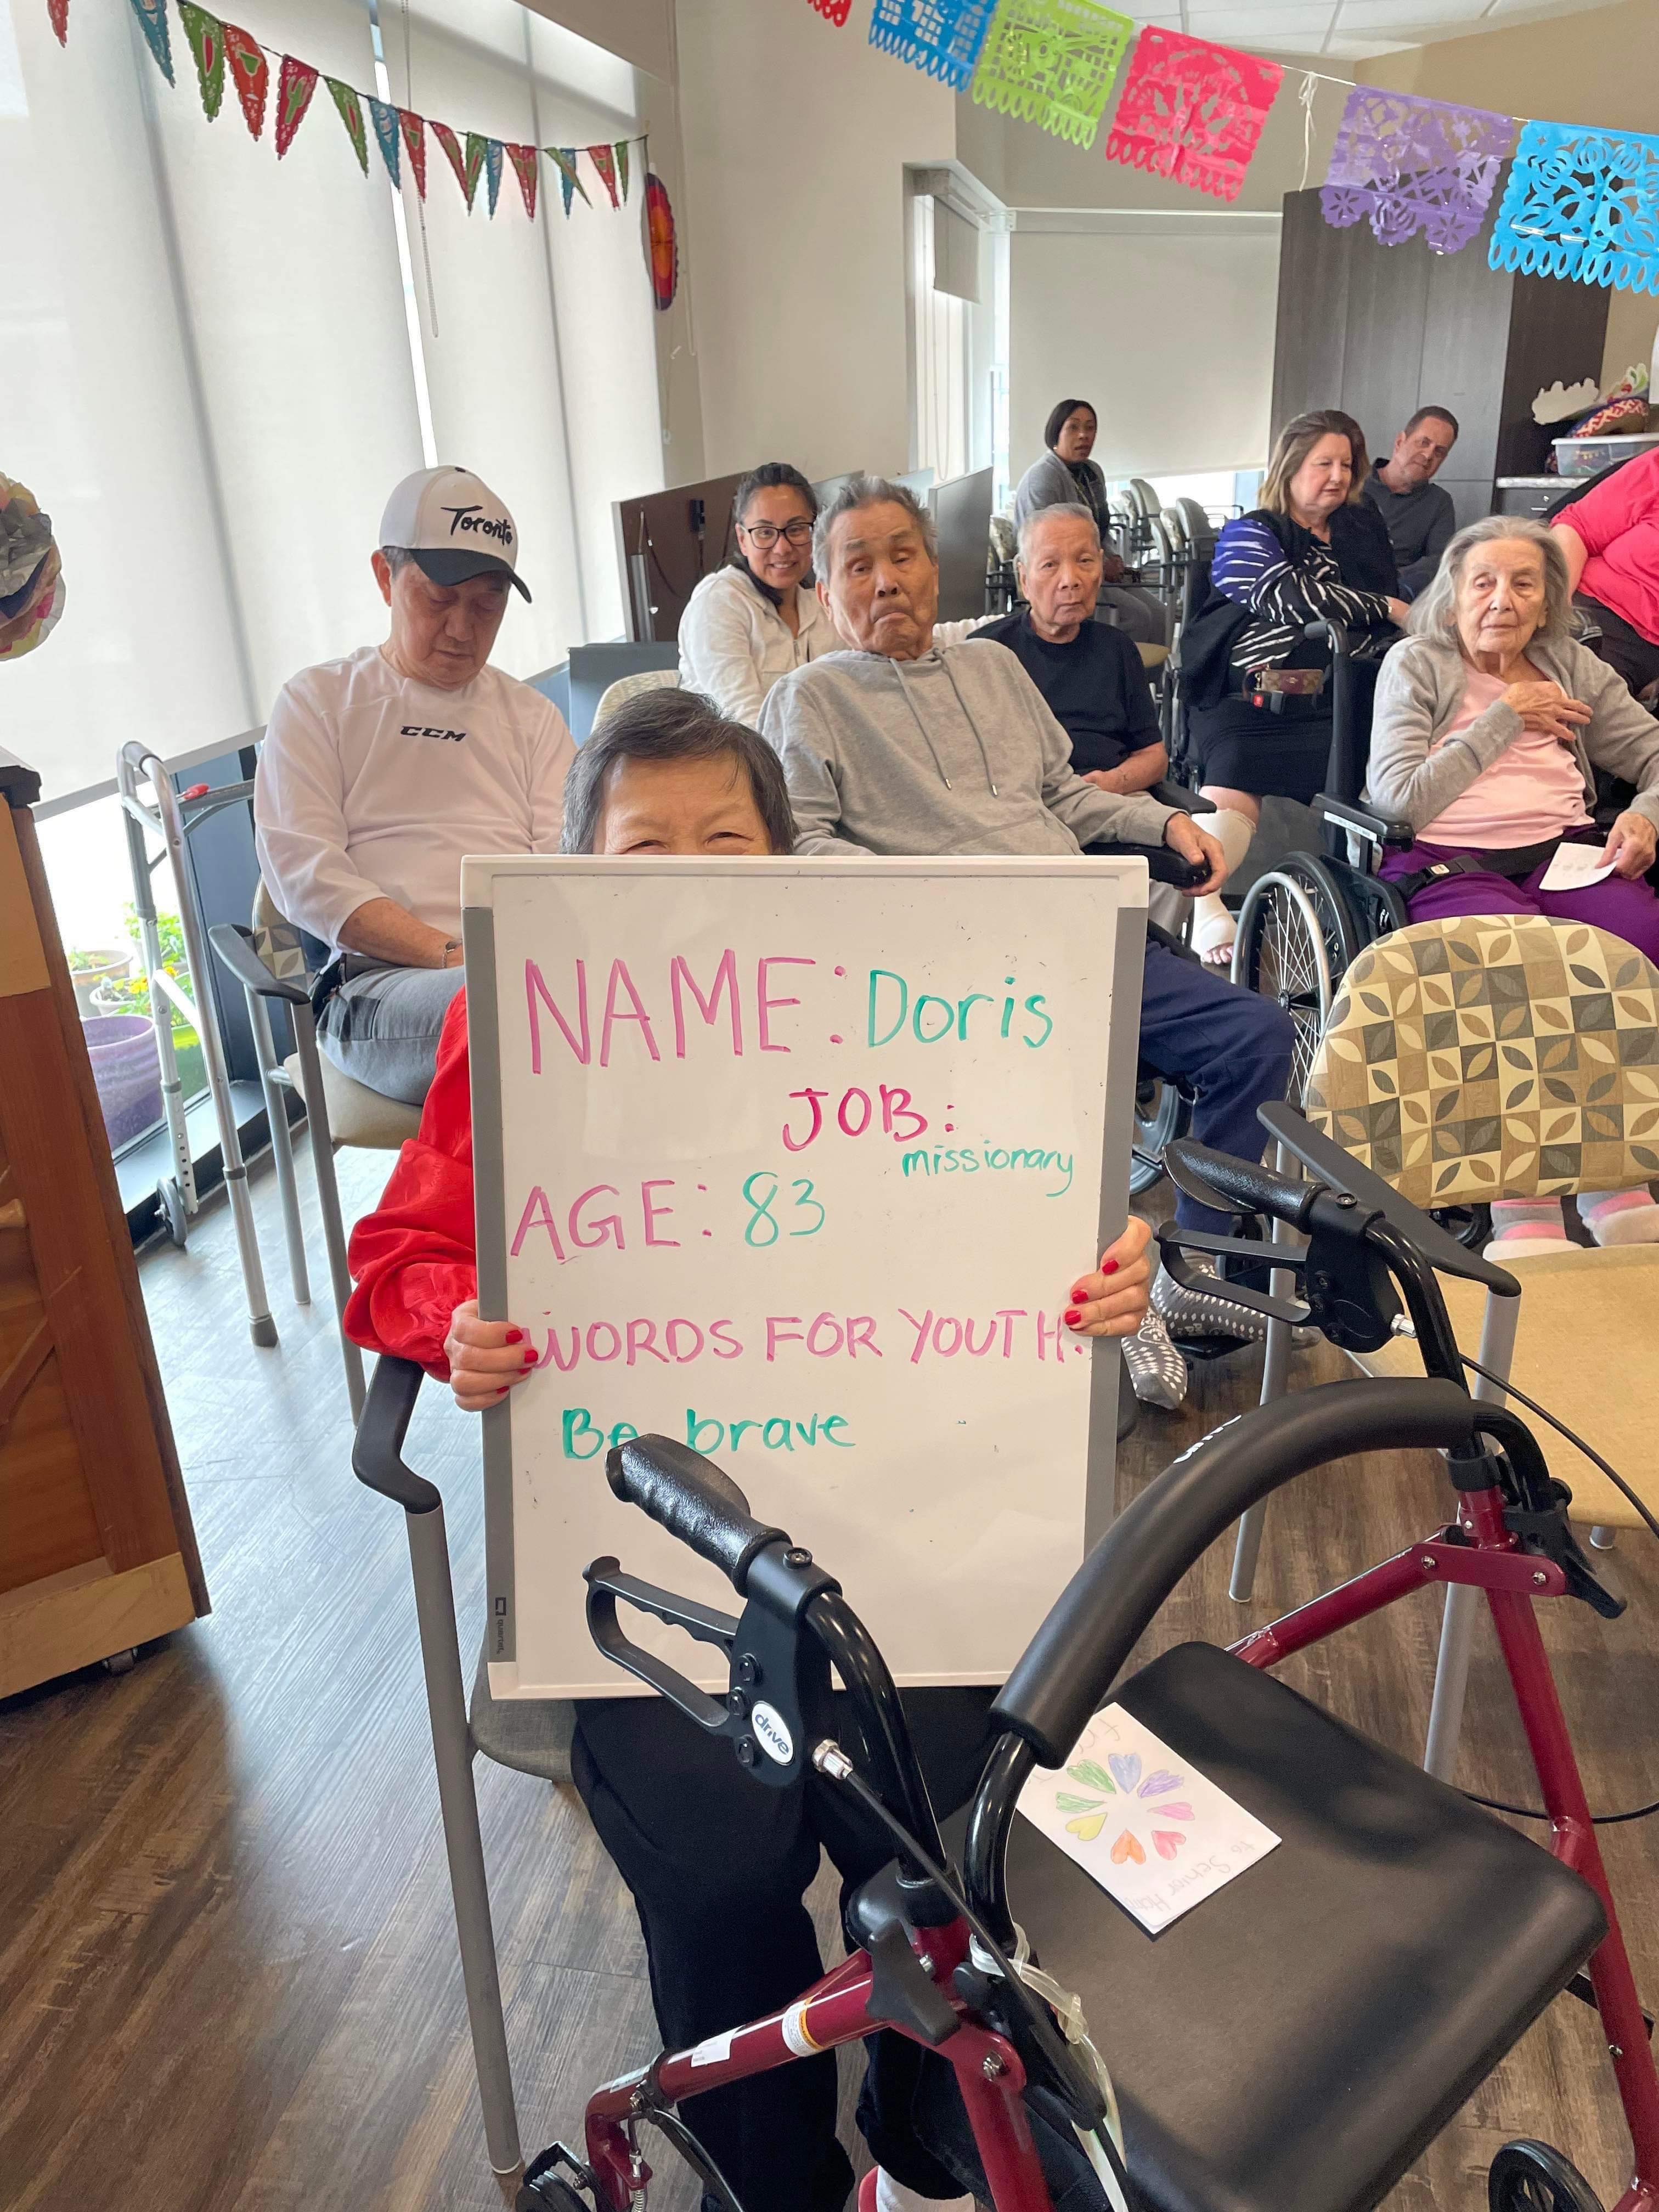 Toronto
CCM
NAME: Doris
JOB:
missionary
AGE: 83
WORDS FOR YOUTH:
Be brave
quartet
drive
to Senior